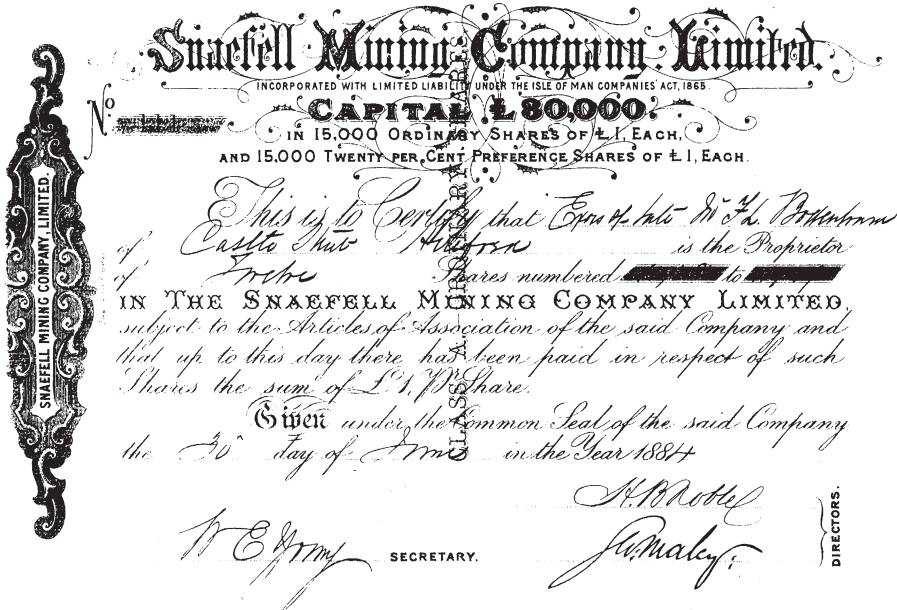 Snaefell Mining Company, Limited.
INCORPORATED WITH LIMITED LIABILITY UNDER THE ISLE OF MAN COMPANIES' ACT, 1865.
No
CAPITAL £30,000.
IN 15,000 ORDINARY SHARES OF £1, EACH,
AND 15,000 TWENTY PER CENT PREFERENCE SHARES OF £1, EACH.
This is to Certify that Exors of late Mr F L
of Castle is the Proprietor
of Twelve Shares numbered to
IN THE SNAEFELL MINING COMPANY LIMITED
subject to the Articles of Association of the said Company and
that up to this day there has been paid in respect of such
Shares the sum of £1, Pr Share.
Given under the Common Seal of the said Company
the 30 day of June in the Year 1884
H. B. Noble
W E Young SECRETARY.
DIRECTORS.
SNAEFELL MINING COMPANY, LIMITED.
CLASS A. ORDINARY SHARES